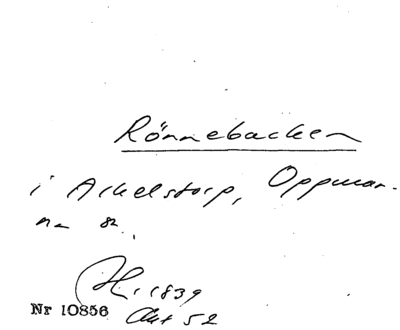 Rönnebacken
i Arkelstorp, Oppman-
na sn.
H. 1839
Nr 10856 Akt 52